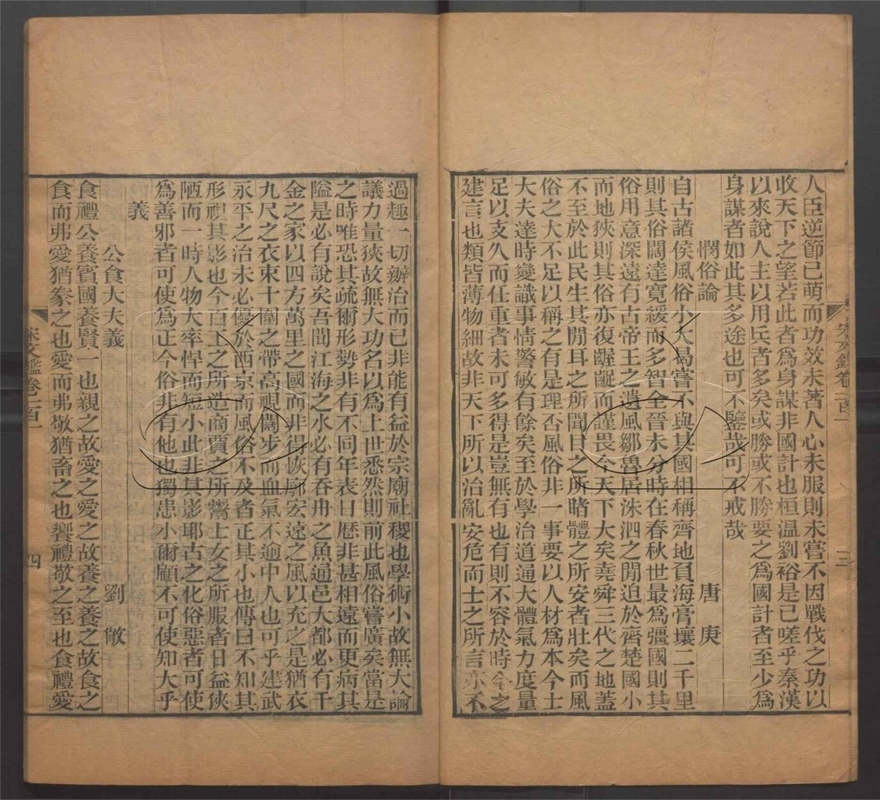 人臣逆節已萌而功效未著人心未服則未嘗不因戰伐之功以
收天下之望若此者為身謀非國計也桓溫劉裕是已嗟乎秦漢
以來說人主以用兵者多矣或勝或不勝要之為國計者至少為
身謀者如此其多途也可不鑒哉可不戒哉
憫俗論 唐庚
自古諸侯風俗小大曷嘗不與其國相稱齊地負海膏壤二千里
則其俗闊達寬緩而多智全晉未分時在春秋世最為彊國則其
俗用意深遠有古帝王之遺風鄒魯居洙泗之閒迫於齊楚國小
而地狹則其俗亦復齷齪而謹畏今天下大矣堯舜三代之地蓋
不至於此民生其閒耳之所聞目之所睹體之所安者壯矣而風
俗之大不足以稱之有是理否風俗非一事要以人材為本今士
大夫達時變識事情警敏有餘矣至於學治道通大體氣力度量
足以支久而任重者未可多得是豈無有也有則不容於時今之
建言也類皆薄物細故非天下所以治亂安危而士之所言亦不
宋文鑑卷一百一 三
過趣一切辦治而已非能有益於宗廟社稷也學術小故無大論
議力量狹故無大功名以為上世悉然則前此風俗嘗廣矣當是
之時唯恐其疏爾形勢非有不同年表曰曆非甚相遠而更病其
隘是必有說矣吾聞江海之水必有吞舟之魚通邑大都必有千
金之家以四方萬里之國而非得恢廓宏遠之風以充之是猶衣
九尺之衣束十圍之帶高視闊步而血氣不逾中人也可乎建武
永平之治未必優於西京而風俗不及者正其小也傳曰不知其
形視其影也今百工之所造商賈之所鬻士女之所服者日益狹
陋而一時人物大率悍而短小此非其影耶古之化俗惡者可使
為善邪者可使為正今俗非有他也獨患小爾顧不可使知大乎
義
公食大夫義 劉敞
食禮公養賓國養賢一也親之故愛之愛之故養之養之故食之
食而弗愛猶豢之也愛而弗敬猶畜之也饗禮敬之至也食禮愛
宋文鑑卷一百一 四